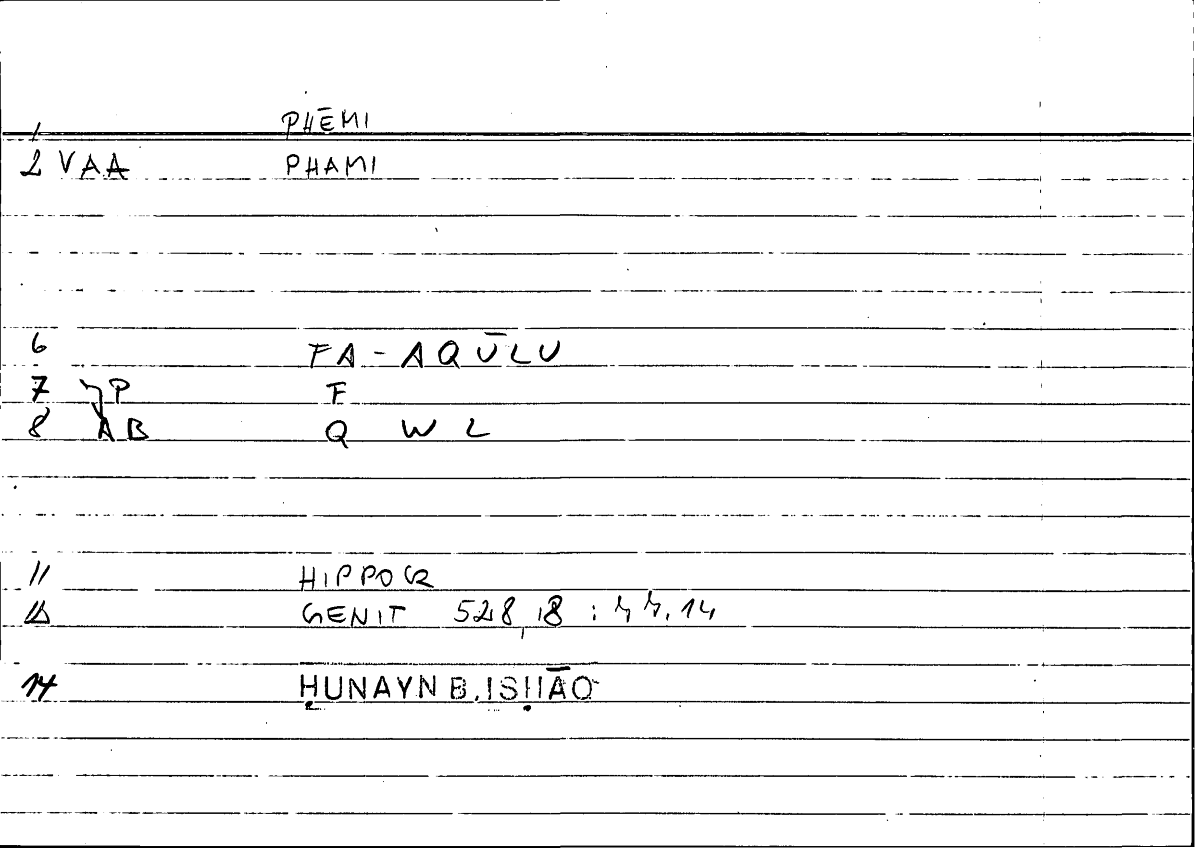 1 PHĒMI
2 VAA PHAMI
6 FA-AQŪLU
7 P F
8 AB Q W L
11 HIPPOCR
GENIT 528,18 : 44.14
14 ḤUNAYN B. ISḤĀQ